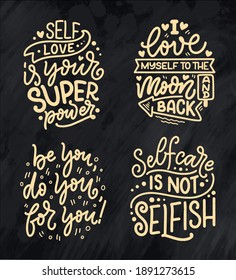 SELF
LOVE
is your
SUPER
power
I
love
MYSELF TO THE
Moon
AND
BACK
be you,
do you,
for you!
Selfcare
IS NOT
SELFISH
shutterstock.com · 1891273615